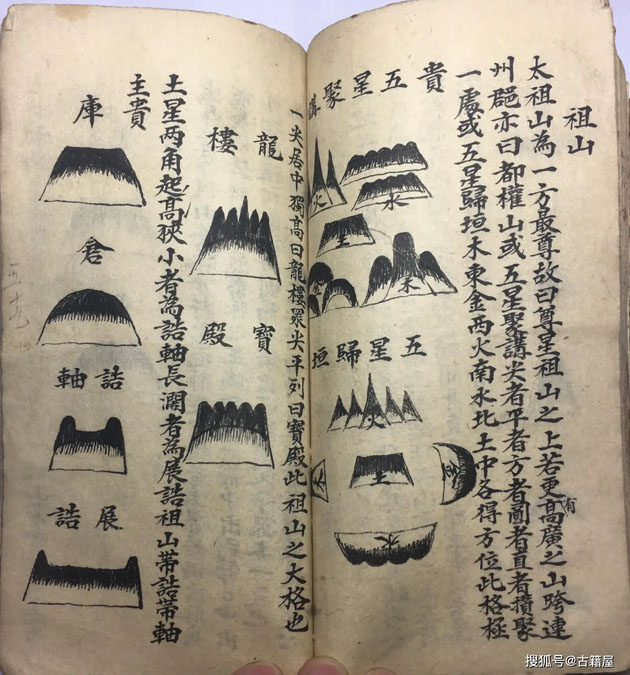 祖山
太祖山為一方最尊故曰尊星祖山之上若更有高廣之山跨連
州郡亦曰都權山或五星聚講尖者平者方者圓者直者攢聚
一處或五星歸垣木東金西火南水北土中各得方位此格極
貴
五星聚講
水
火
土
木
金
五星歸垣
火
金
土
木
水
一尖居中獨高曰龍樓眾尖平列曰寶殿此祖山之大格也
龍樓
寶殿
土星两角起高狹小者為誥軸長濶者為展誥祖山帶誥帶軸
主貴
庫
倉
誥軸
展誥
搜狐号@古籍屋